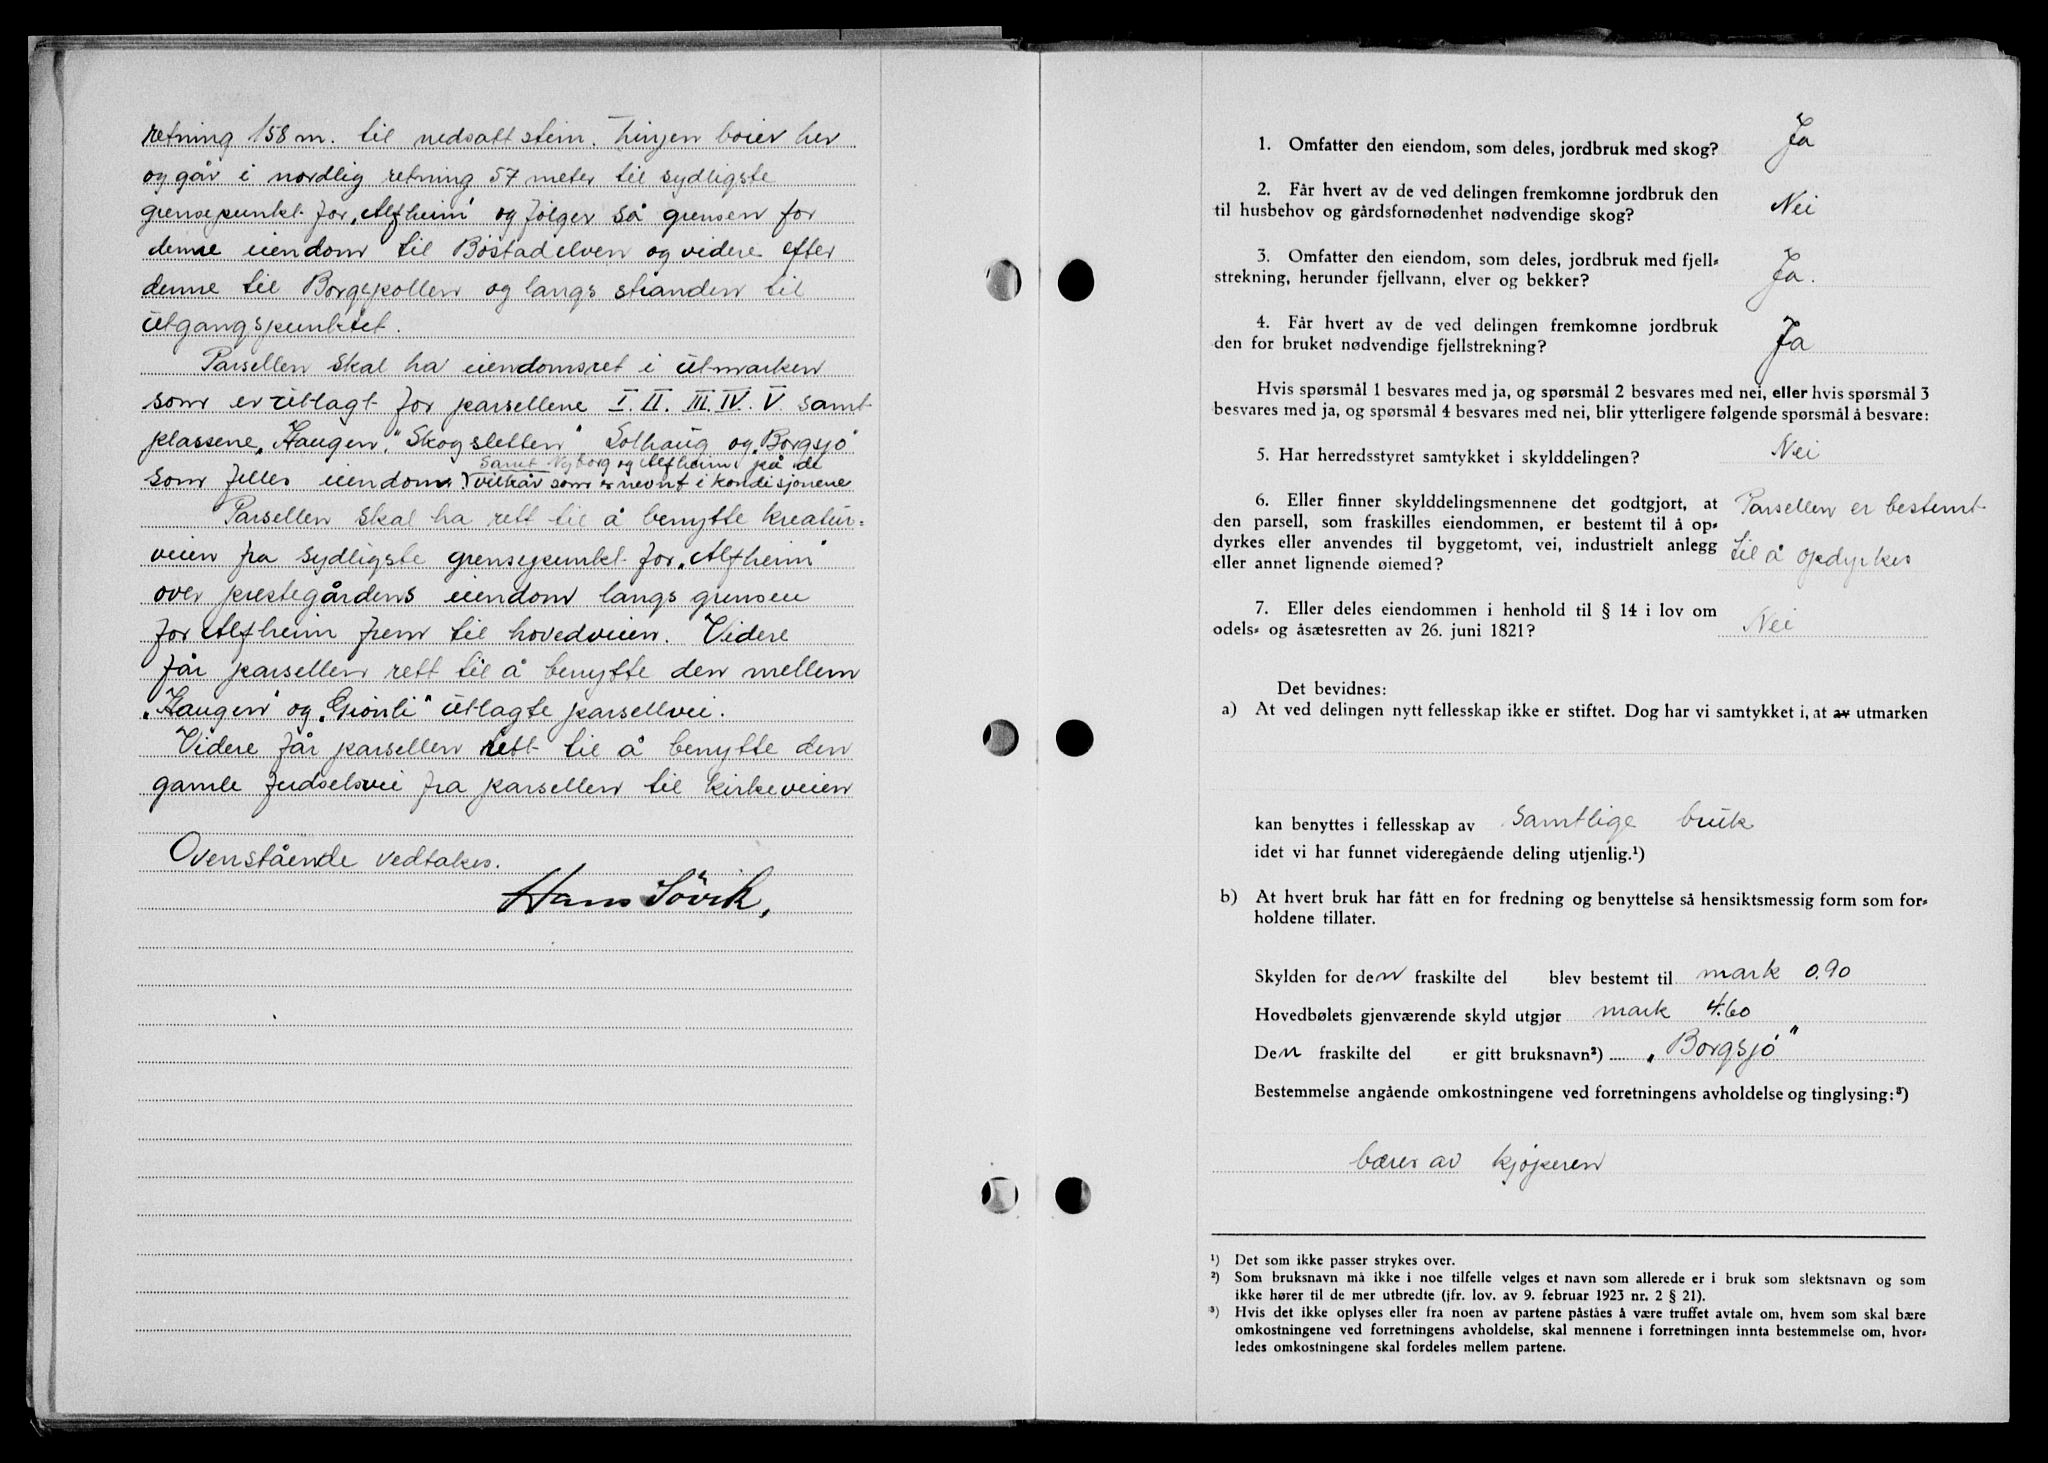 retning 158 m. til nedsatt stein. Linjen boier her
og går i nordlig retning 57 meter til sydligste
grensepunkt for "Alfheim" og følger så grensen for
denne eiendom til Bøstadelven og videre efter
denne til Borgepollen og langs stranden til
utgangspunktet.
Parsellen skal ha eiendomsret i utmarken
som er utlagt for parsellene I. II. III. IV. V. samt
plassene "Haugen", "Skogsletten" Solhaug og "Borgsjø"
samt Nyborg og Alfheim på de
som felles eiendom vilkår som er nevnt i kondisjonene
Parsellen skal ha rett til å benytte kreatur-
veien fra sydligste grensepunkt for "Alfheim"
over prestegårdens eiendom langs grensen
for Alfheim frem til hovedveien. Videre
får parsellen rett til å benytte den mellem
"Haugen" og "Grønli" utlagte parsellvei.
Videre får parsellen rett til å benytte den
gamle ferdselsvei fra parsellen til kirkeveien
Ovenstående vedtakes.
Hans Søvik,
1. Omfatter den eiendom, som deles, jordbruk med skog? Ja
2. Får hvert av de ved delingen fremkomne jordbruk den
til husbehov og gårdsfornødenhet nødvendige skog? Nei
3. Omfatter den eiendom, som deles, jordbruk med fjell-
strekning, herunder fjellvann, elver og bekker? Ja.
4. Får hvert av de ved delingen fremkomne jordbruk
den for bruket nødvendige fjellstrekning? Ja
Hvis spørsmål 1 besvares med ja, og spørsmål 2 besvares med nei, eller hvis spørsmål 3
besvares med ja, og spørsmål 4 besvares med nei, blir ytterligere følgende spørsmål å besvare:
5. Har herredsstyret samtykket i skylddelingen? Nei
6. Eller finner skylddelingsmennene det godtgjort, at Parsellen er bestemt
den parsell, som fraskilles eiendommen, er bestemt til å op-
dyrkes eller anvendes til byggetomt, vei, industrielt anlegg til å opdyrkes
eller annet lignende øiemed?
7. Eller deles eiendommen i henhold til § 14 i lov om
odels- og åsætesretten av 26. juni 1821? Nei
Det bevidnes:
a) At ved delingen nytt fellesskap ikke er stiftet. Dog har vi samtykket i, at av utmarken
kan benyttes i fellesskap av samtlige bruk
idet vi har funnet videregående deling utjenlig.¹)
b) At hvert bruk har fått en for fredning og benyttelse så hensiktsmessig form som for-
holdene tillater.
Skylden for den fraskilte del blev bestemt til mark 0.90
Hovedbølets gjenværende skyld utgjør mark 4.60
Den fraskilte del er gitt bruksnavn²) "Borgsjø"
Bestemmelse angående omkostningene ved forretningens avholdelse og tinglysing:³)
bæres av kjøperen
¹) Det som ikke passer strykes over.
²) Som bruksnavn må ikke i noe tilfelle velges et navn som allerede er i bruk som slektsnavn og som
ikke hører til de mer utbredte (jfr. lov. av 9. februar 1923 nr. 2 § 21).
³) Hvis det ikke oplyses eller fra noen av partene påståes å være truffet avtale om, hvem som skal bære
omkostningene ved forretningens avholdelse, skal mennene i forretningen innta bestemmelse om, hvor-
ledes omkostningene skal fordeles mellem partene.